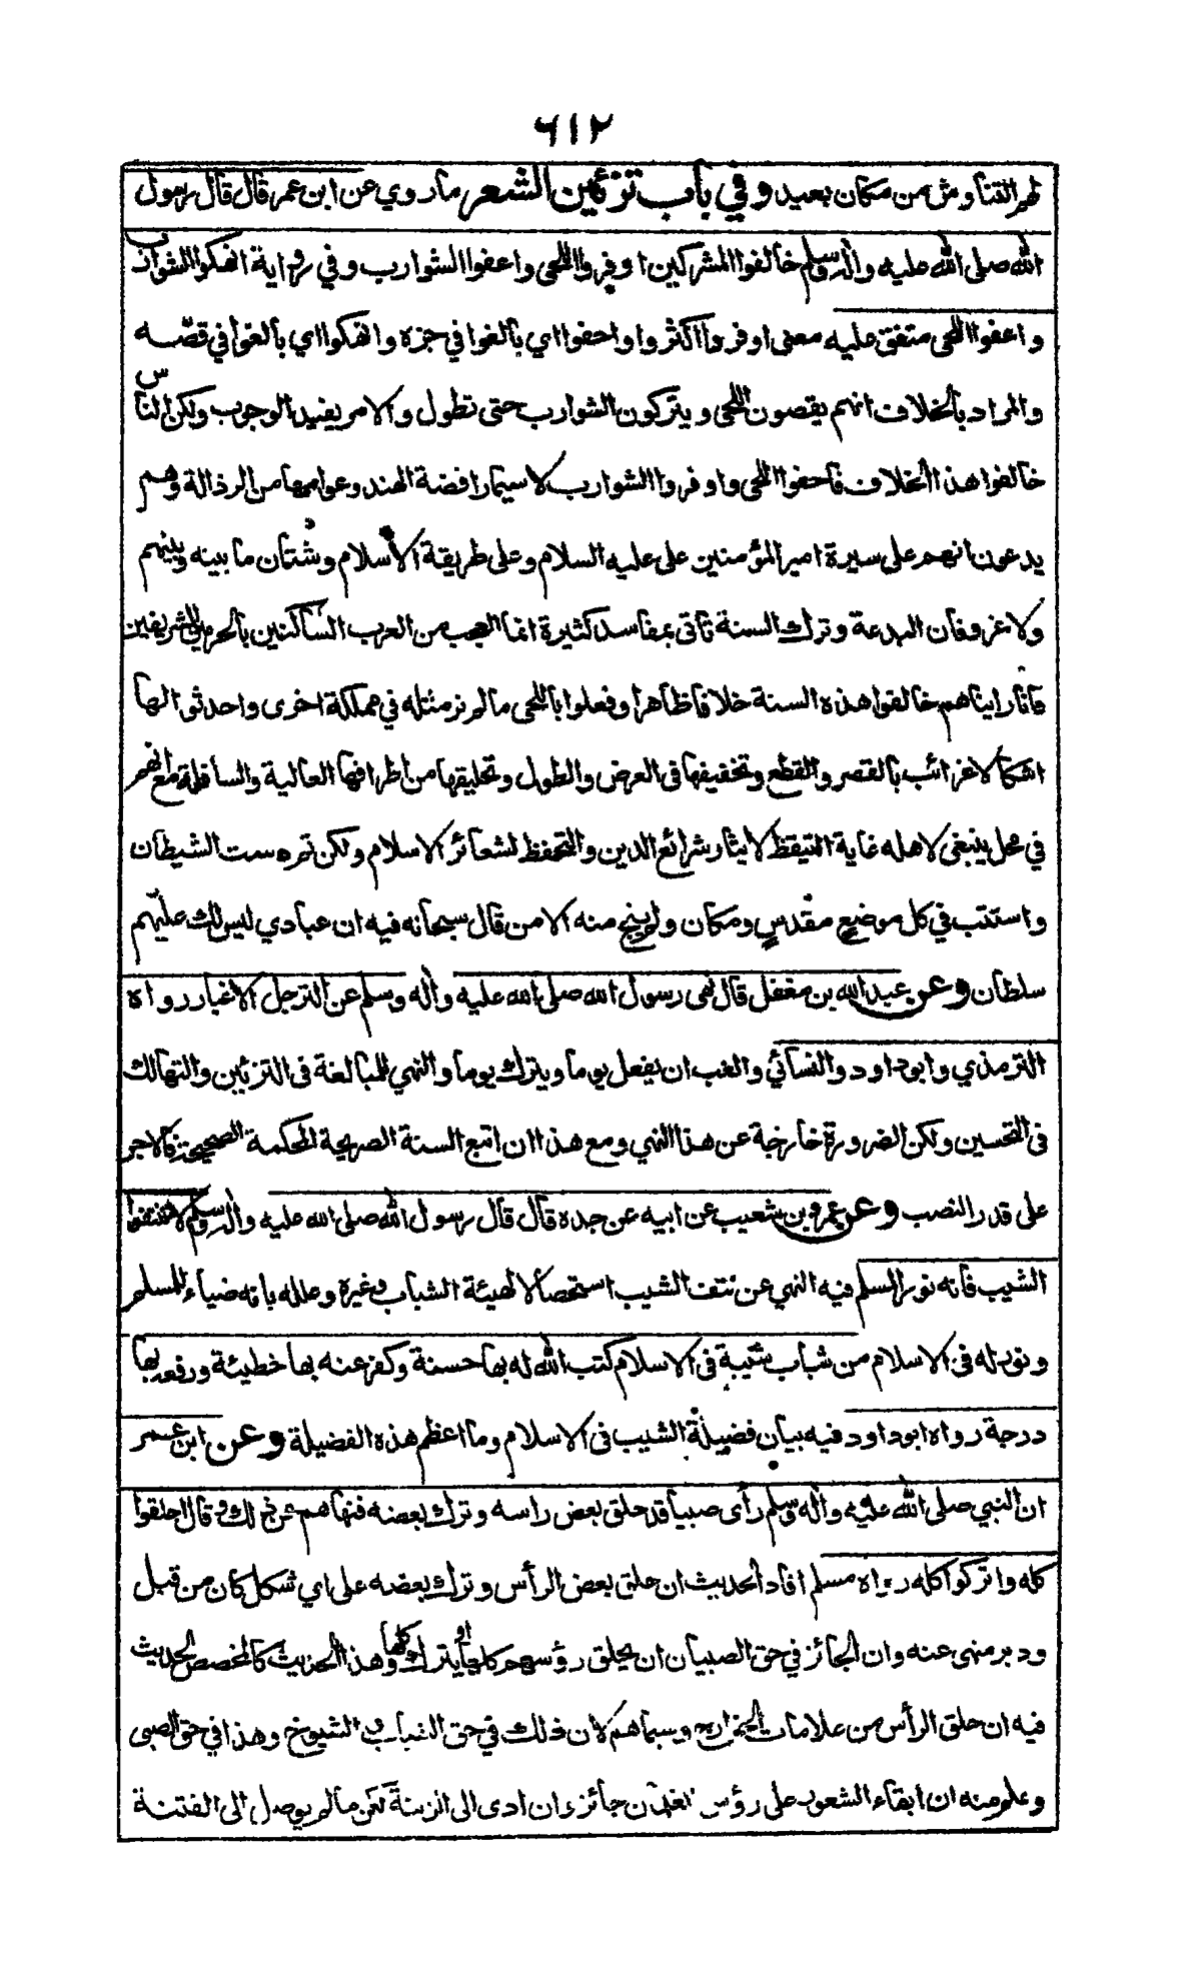 ٦١٢
لهم التناوش من مكان بعيد وفي باب تزئين الشعر ما روي عن ابن عمر قال قال رسول
الله صلى الله عليه واله وسلم خالفوا المشركين اوفروا اللحى واعفوا الشوارب وفي رواية انهكوا الشوارب
واعفوا اللحى متفق عليه معنى اوفروا اكثروا واحفوا اي بالغوا في جزه وانهكوا اي بالغوا في قصّه
والمراد بالخلاف انهم يقصون اللحى ويتركون الشوارب حتى تطول والامر يفيد الوجوب ولكن الناس
خالفوا هذا الخلاف فاحفوا اللحى واوفروا الشوارب لاسيما رافضة الهند وعوامها من الرذالة وهم
يدعون انهم على سيرة امير المؤمنين على عليه السلام وعلى طريقة الاسلام وشتان ما بينه وبينهم
ولا غرو فان البدعة وترك السنة تأتى بمفاسد كثيرة انما العجب من العرب الساكنين بالحرمين الشريفين
فانا رايناهم خالفوا هذه السنة خلافا ظاهرا وفعلوا باللحى ما لم نر مثله في مملكة اخرى واحدثوا لها
اشكالا غرائب بالقصر والقطع وتخفيفها فى العرض والطول وتحليقها من اطرافها العالية والسافلة مع انهم
في محل ينبغى لاهله غاية التيقظ لايثار شرائع الدين والتحفظ لشعائر الاسلام ولكن تمردست الشيطان
واستتب في كل موضع مقدس ومكان ولم ينج منه الا من قال سبحانه فيه ان عبادي ليس لك عليهم
سلطان وعن عبد الله بن مغفل قال نهى رسول الله صلى الله عليه واله وسلم عن الترجل الا غبا رواه
الترمذي وابو داود والنسائي والغب ان يفعل يوما ويترك يوما والنهي للمبالغة فى التزئين والتهالك
فى التحسين ولكن الضرورة خارجة عن هذا النهي ومع هذا ان اتبع السنة الصريحة المحكمة الصحيحة فالاجر
على قدر النصب وعن عمرو بن شعيب عن ابيه عن جده قال قال رسول الله صلى الله عليه واله وسلم لا تنتفوا
الشيب فانه نور المسلم فيه النهي عن نتف الشيب استحصالا لهيئة الشباب وغيره وعلله بانه ضياء للمسلم
ونور له فى الاسلام من شاب شيبة فى الاسلام كتب الله له بها حسنة وكفر عنه بها خطيئة ورفعه بها
درجة رواه ابو داود فيه بيان فضيلة الشيب فى الاسلام وما اعظم هذه الفضيلة وعن ابن عمر
ان النبي صلى الله عليه واله وسلم رأى صبيا قد حلق بعض راسه وترك بعضه فنهاهم عن ذلك وقال احلقوا
كله واتركوا كله رواه مسلم افاد الحديث ان حلق بعض الرأس وترك بعضه على اي شكل كان من قبل
ودبر منهى عنه وان الجائز في حق الصبيان ان يحلق رؤسهم كلها او يترك كلها وهذا الحديث كالمخصص لحديث
فيه ان حلق الرأس من علامات الخوارج وسيماهم لان ذلك في حق الشباب والشيوخ وهذا في حق الصبى
وعلم منه ان ابقاء الشعور على رؤس الغلمان جائز وان ادى الى الزينة لكن ما لم يوصل الى الفتنة